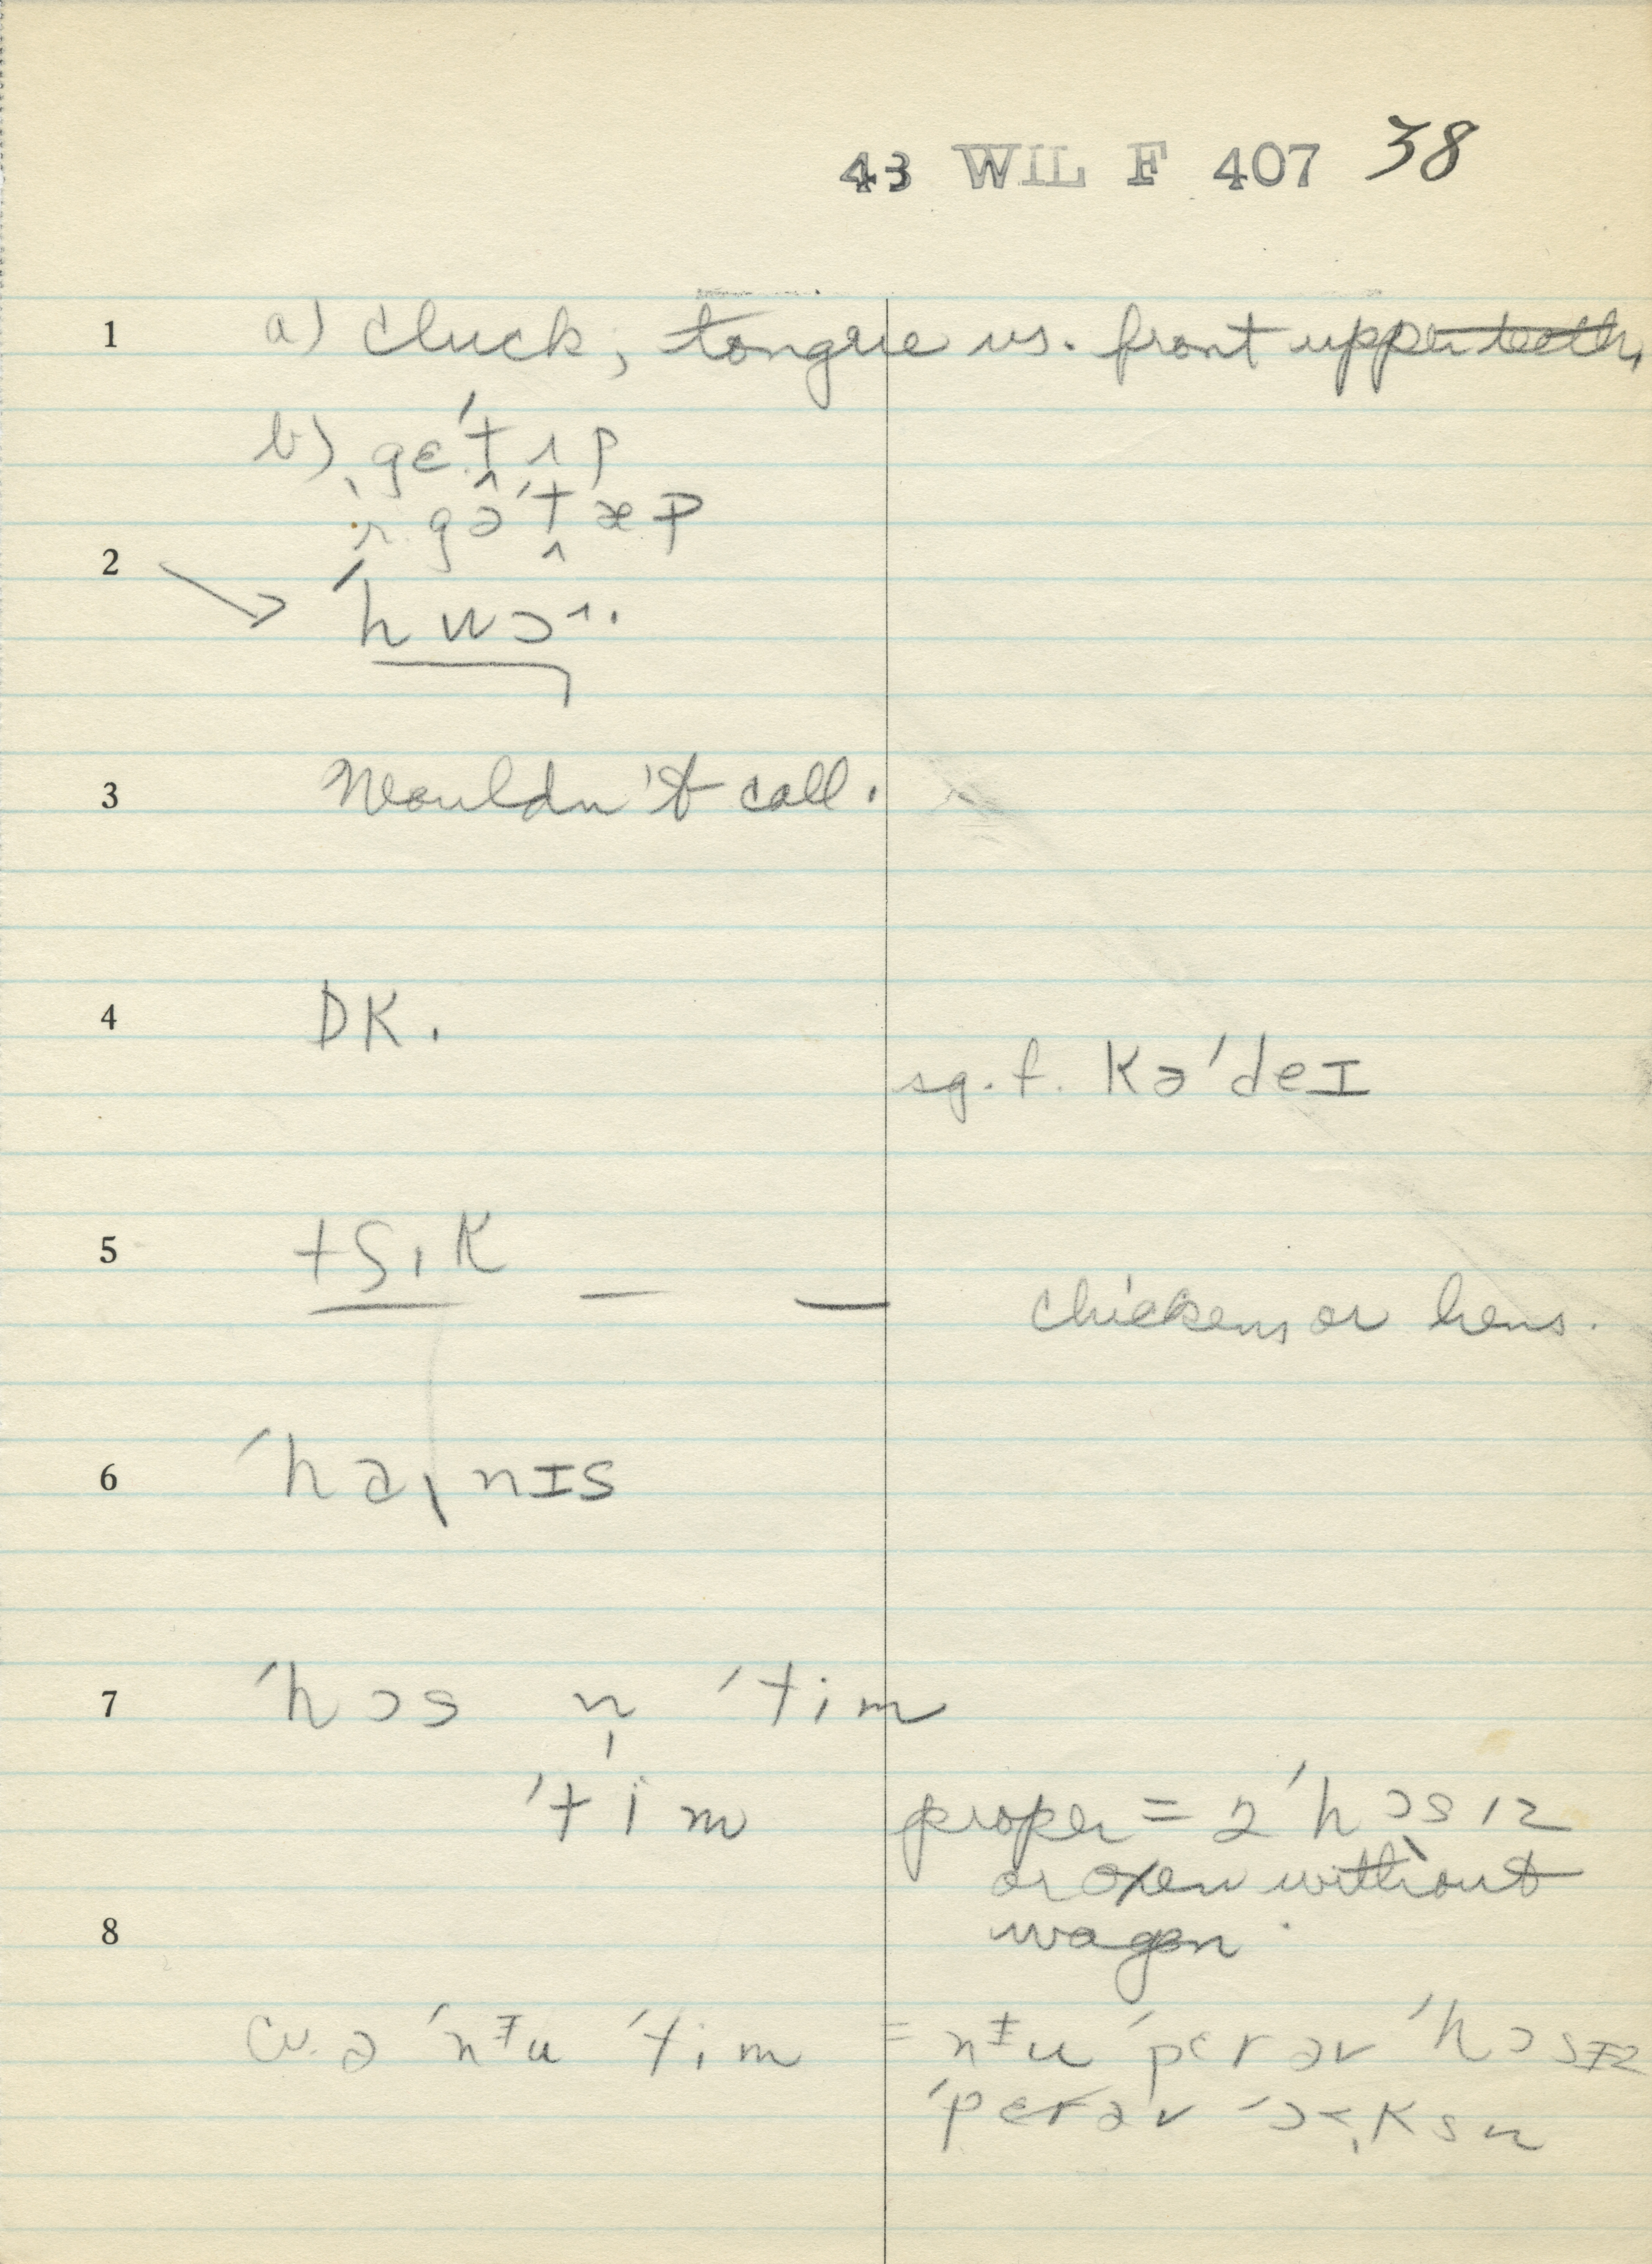 43 WIL F 407 38
1 a) cluck, tongue vs. front upper teeth,
b) ˌgɛ'tɪp
gə'tæp
2 'hwɔ
3 Wouldn't call.
4 DK.
sg. f. Kə'deI
5 tʃɪK — —
chickens or hens.
6 'haˌnIs
7 'hɔs n̩ 'tim
'tim proper = 2 'hɔsɪz
or oxen without
8 wagon.
cv. ə 'nᵻu 'tim = nᵻu 'pɛr əv 'hɔsIz
'pɛr əv